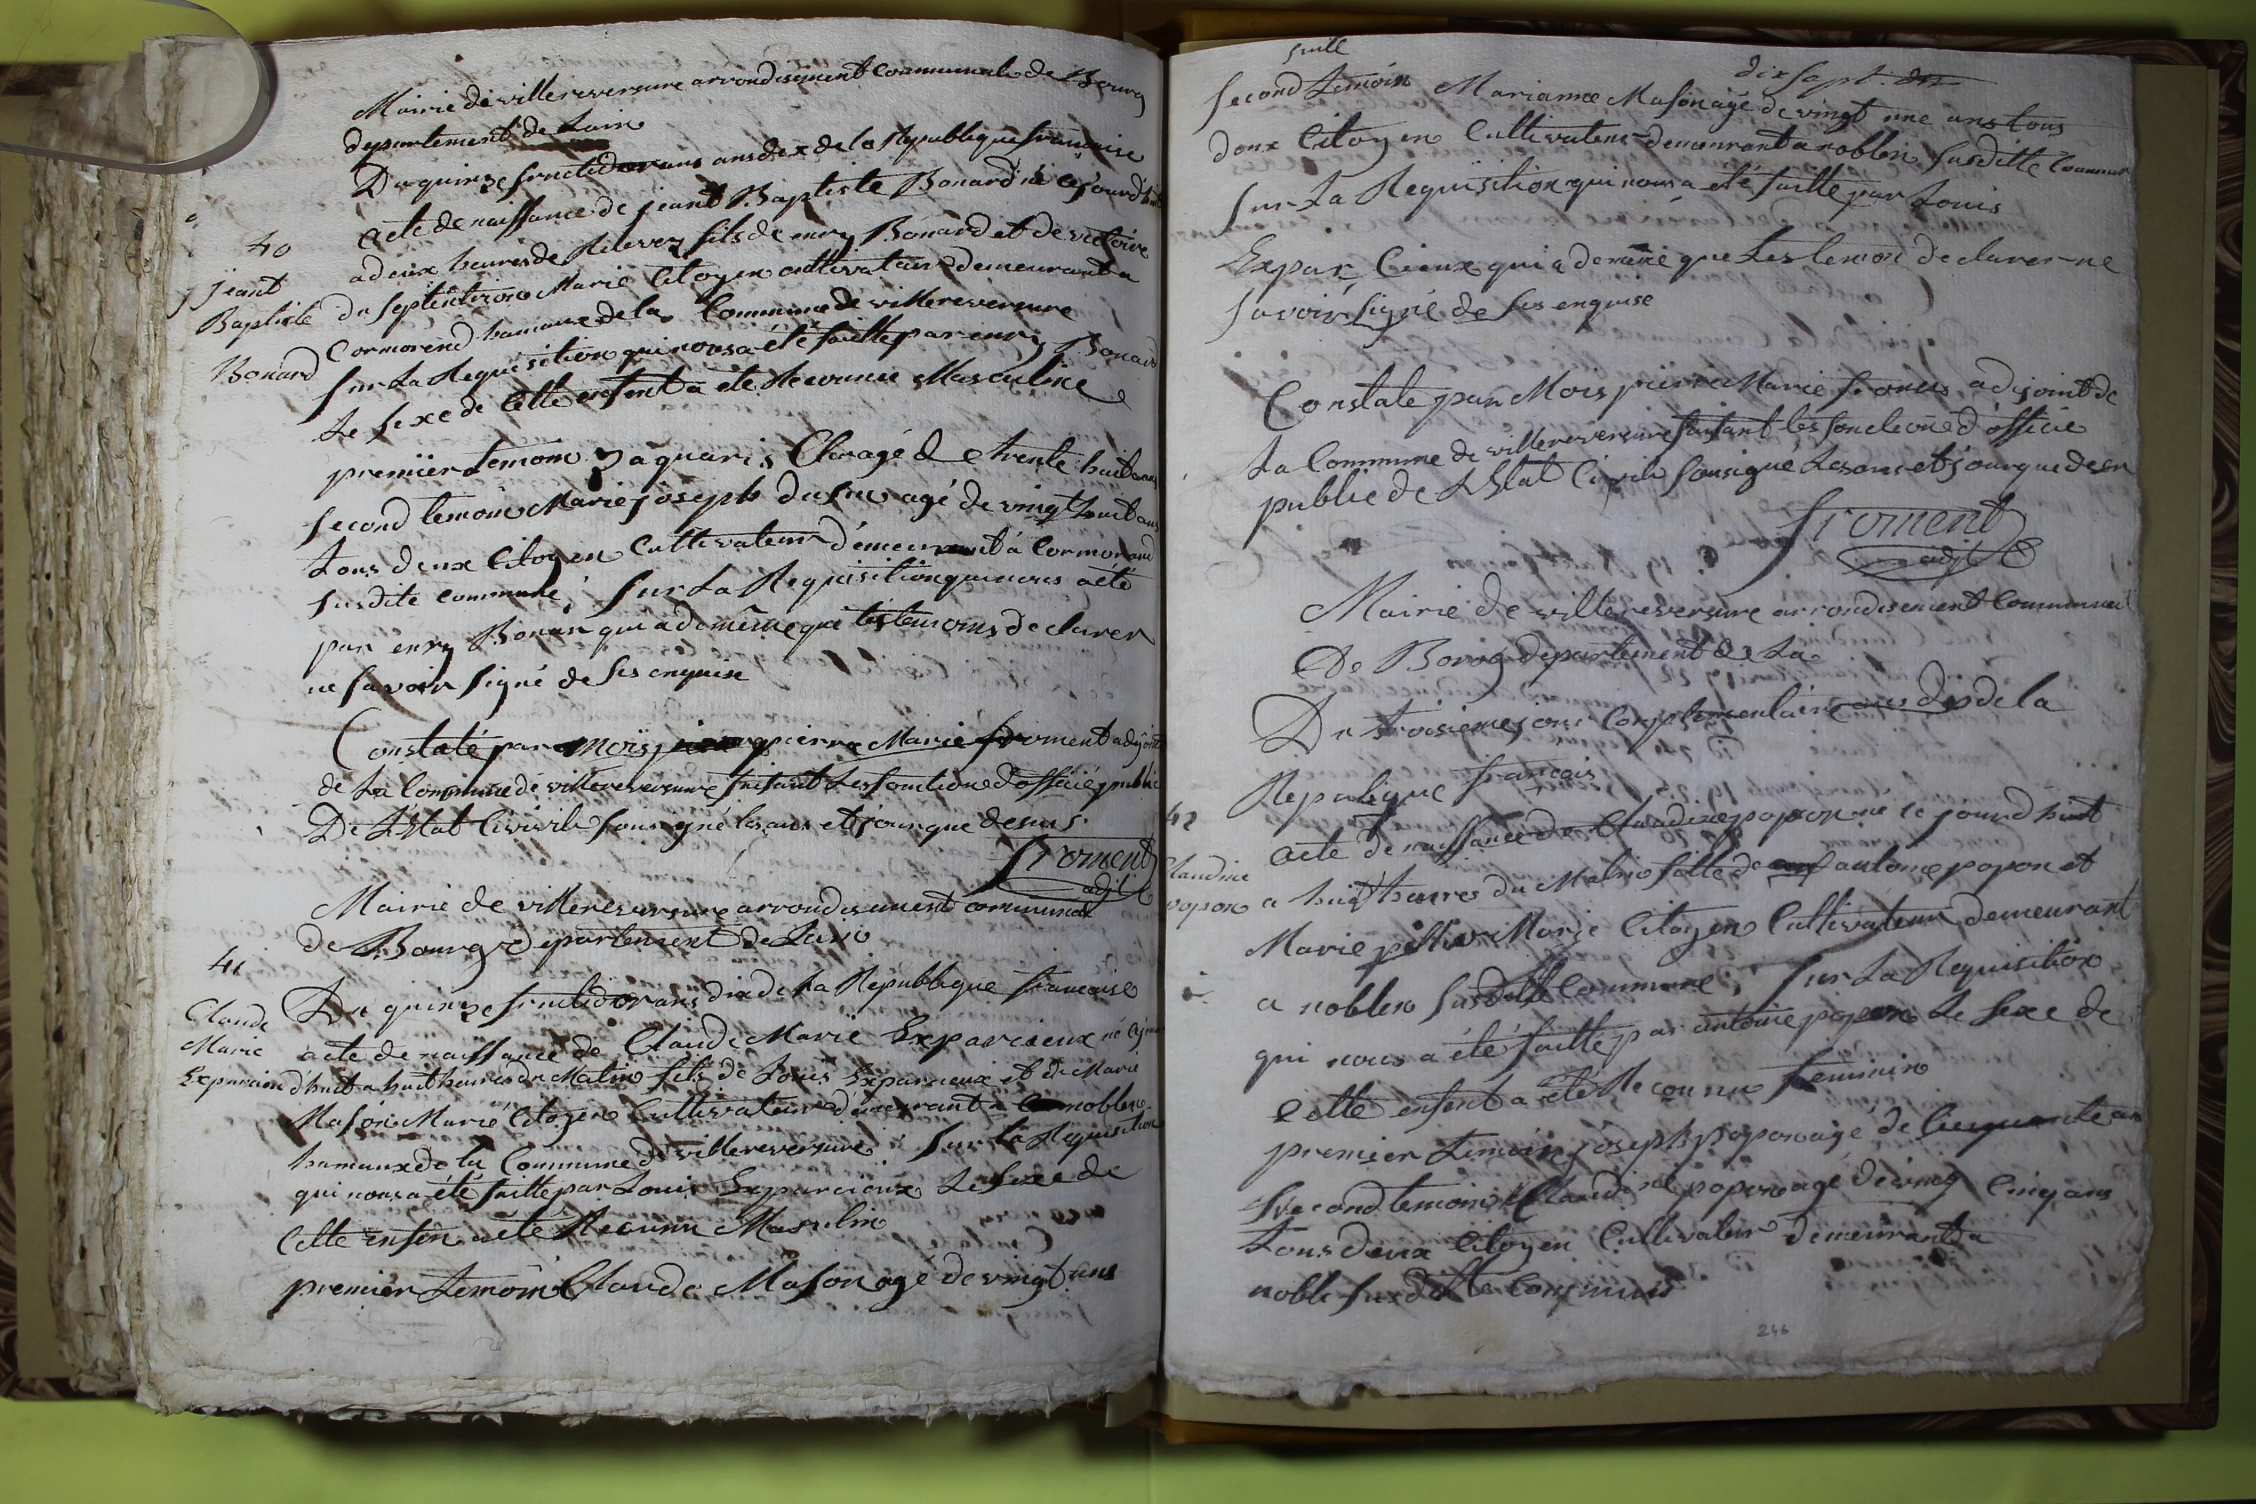 Mairie de villereversure arrondisement communale de Bourg
departement de Lain
Du quinze fructidor ans dix de la Republique francaise
acte de naissance de jeant Baptiste Bonard né ce jourd'huit
40
jeant
Baptiste
Bonard
a deux heures de Relevez fils de enry Bonard et de victoire
du septention Marié Citoyen cultivateur demeurant a
Cormorend hamaux de la Commune de villereversure
sur La Requisition qui nous a été faitte par enry Bonard
Le sexe de Cette enfent a été Reconnu Masculine
premier temoin agé de trente huit ans
second temoin Marie joseph dufour agé de vingt huit ans
tous deux Citoyen Cultivateur demeurant a Cormorand
susdite commune, sur La Requisition qui nous a été
par enry Bonar qui a de même que les temoins declarer
ne savoir signé de ses enquise
Constaté par mois pierre Marie froment adjoint
de La Commune de villereversure faisant Les fonctions d'officié public
De L'Etat Civivile sousigné les ans et jour que desus
froment
adjt
Mairie de villereversure arrondisement communal
de Bourg departement de Lain
41
Claude
Marie
Exparcieu
Du quinze fructidor ans dix de la Republique francaise
acte de naissance de Claude Marie Exparcieux né ce jour
d'huit a huit heures du Matin fils de Louis Exparcieux et de Marie
Mason Marié Citoyen Cultivateur demeurant a noblen
hamaux de la Commune de villereversure sur la Requisition
qui nous a été faitte par Louis Exparcieux Le sexe de
Cette enfen a été Reconnu Masculin
premier temoin Claude Mason agé de vingt ans
suite
dix sept
second temoin Marianne Mason agé de vingt une ans tous
deux Citoyen Cultivateur demeurant a noblen susditte Commun
sur La Requisition qui nous a été faitte par Louis
Expar Cieux qui a de même que Les temoin declarer ne
savoir signé de ses enquise
Constate par Mois pierre Marie froment adjoint de
La Commune de villereversure faisant les fonctions d'officié
public de L'Etat Civile sousigné Les ans et jour que desu
froment
adjt
Mairie de villereversure arrondisement Communal
De Bourg departement de La
Du troisieme jour Complementaire ans dix de la
Republique francais
42
Claudine
popon
acte de naissance de Claudine popon né ce jourd huit
a huit heures du Matin fille de antoine popon et
Marie pillier Marié Citoyen Cultivateur demeurant
a noblen susditte Commune, sur La Requisition
qui nous a été faitte par antoine popon Le sexe de
Cette enfent a été Reconnu feminin
premier temoin joseph popon agé de Cinquante an
second temoin Claudine popon agé de vingt Cinq ans
tous deux Citoyen Cultivateur demeurant a
noble susditte Commune
246